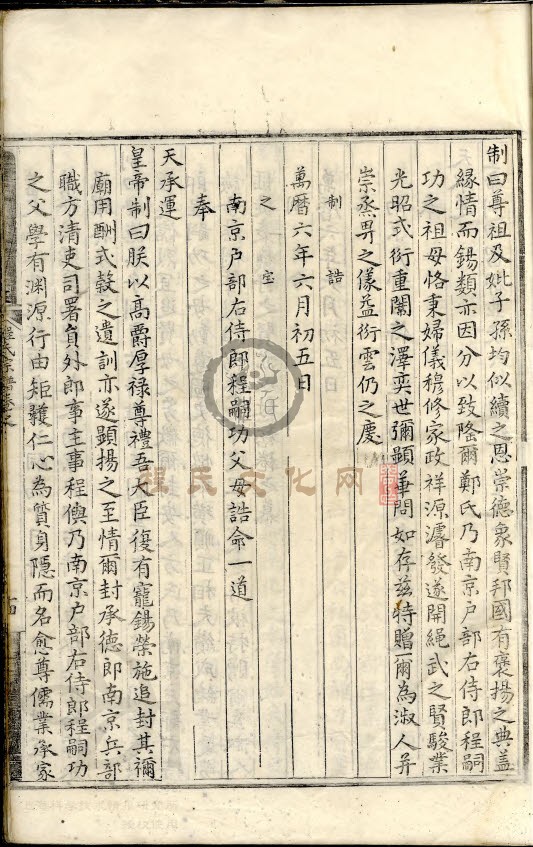 制曰尊祖及妣子孫均似續之恩崇德象賢邦國有褒揚之典蓋
緣情而錫類亦因分以致隆爾鄭氏乃南京户部右侍郎程嗣
功之祖母恪秉婦儀穆修家政祥源濬發遂開繩武之賢駿業
光昭式衍重闈之澤奕世彌顯華問如存兹特贈爾為淑人并
崇烝畀之儀益衍雲仍之慶
制誥
萬曆六年六月初五日
之宝
南京户部右侍郎程嗣功父母誥命一道
奉
天承運
皇帝制曰朕以高爵厚禄尊禮吾大臣復有寵錫榮施追封其禰
廟用酬式穀之遺訓亦遂顯揚之至情爾封承德郎南京兵部
職方清吏司署員外郎事主事程㒜乃南京户部右侍郎程嗣功
之父學有渊源行由矩矱仁心為質身隱而名愈尊儒業承家
程氏文化网